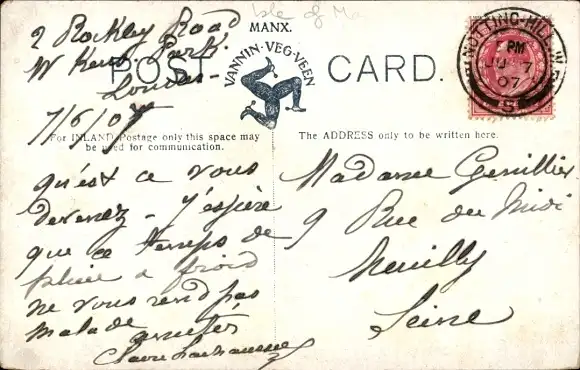 2 Rockley Road
W Kens. Park.
London
7/6/07
Isle of Ma
MANX.
VANNIN·VEG·VEEN
POST CARD.
NOTTING-HILL.W
PM
JU 7
07
For INLAND Postage only this space may
be used for communication.
The ADDRESS only to be written here.
qu'est ce vous
devenez - J'espère
que ce temps de
pluie & froid
ne vous rend pas
malade
amitiés
Claire
Madame
9 Rue du Midi
Neuilly
Seine